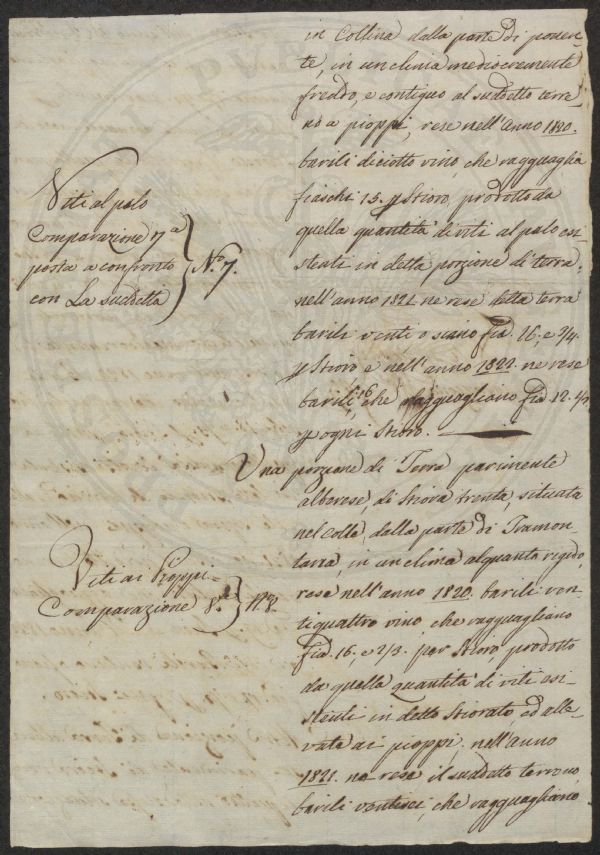 in Collina dalla parte di ponen-
te, in un clima mediocremente
freddo, e contiguo al suddetto terre
no a pioppi, rese nell'Anno 1820.
barili diciotto vino, che ragguaglia
fiaschi 15. p Stioro, prodotto da
quella quantità di viti al palo esi
stenti in detta porzione di terra;
nell'anno 1821. ne rese detta terra
barili venti o siano fia. 16. e 2/4.
p Stioro e nell'anno 1822. ne rese
barili 16 che ragguagliano fia. 12.
p ogni Stioro.
Viti al palo
Comparazione 7a
posta a confronto
con La suddetta
No 7.
Una porzione di Terra parimente
alberese, di Stiora trenta, situata
nel colle, dalla parte di Tramon-
tana, in un clima alquanto rigido,
rese nell'anno 1820. barili ven
tiquattro vino, che ragguagliano
fia. 16. e 2/3. per Stioro, prodotto
da quella quantità di viti esi
stenti in detto Stiorato, ed alle-
vate ai pioppi; nell'anno
1821. ne rese il suddetto terreno
barili ventisei, che ragguagliano
Viti ai Pioppi-
Comparazione 8.a
N. 8.